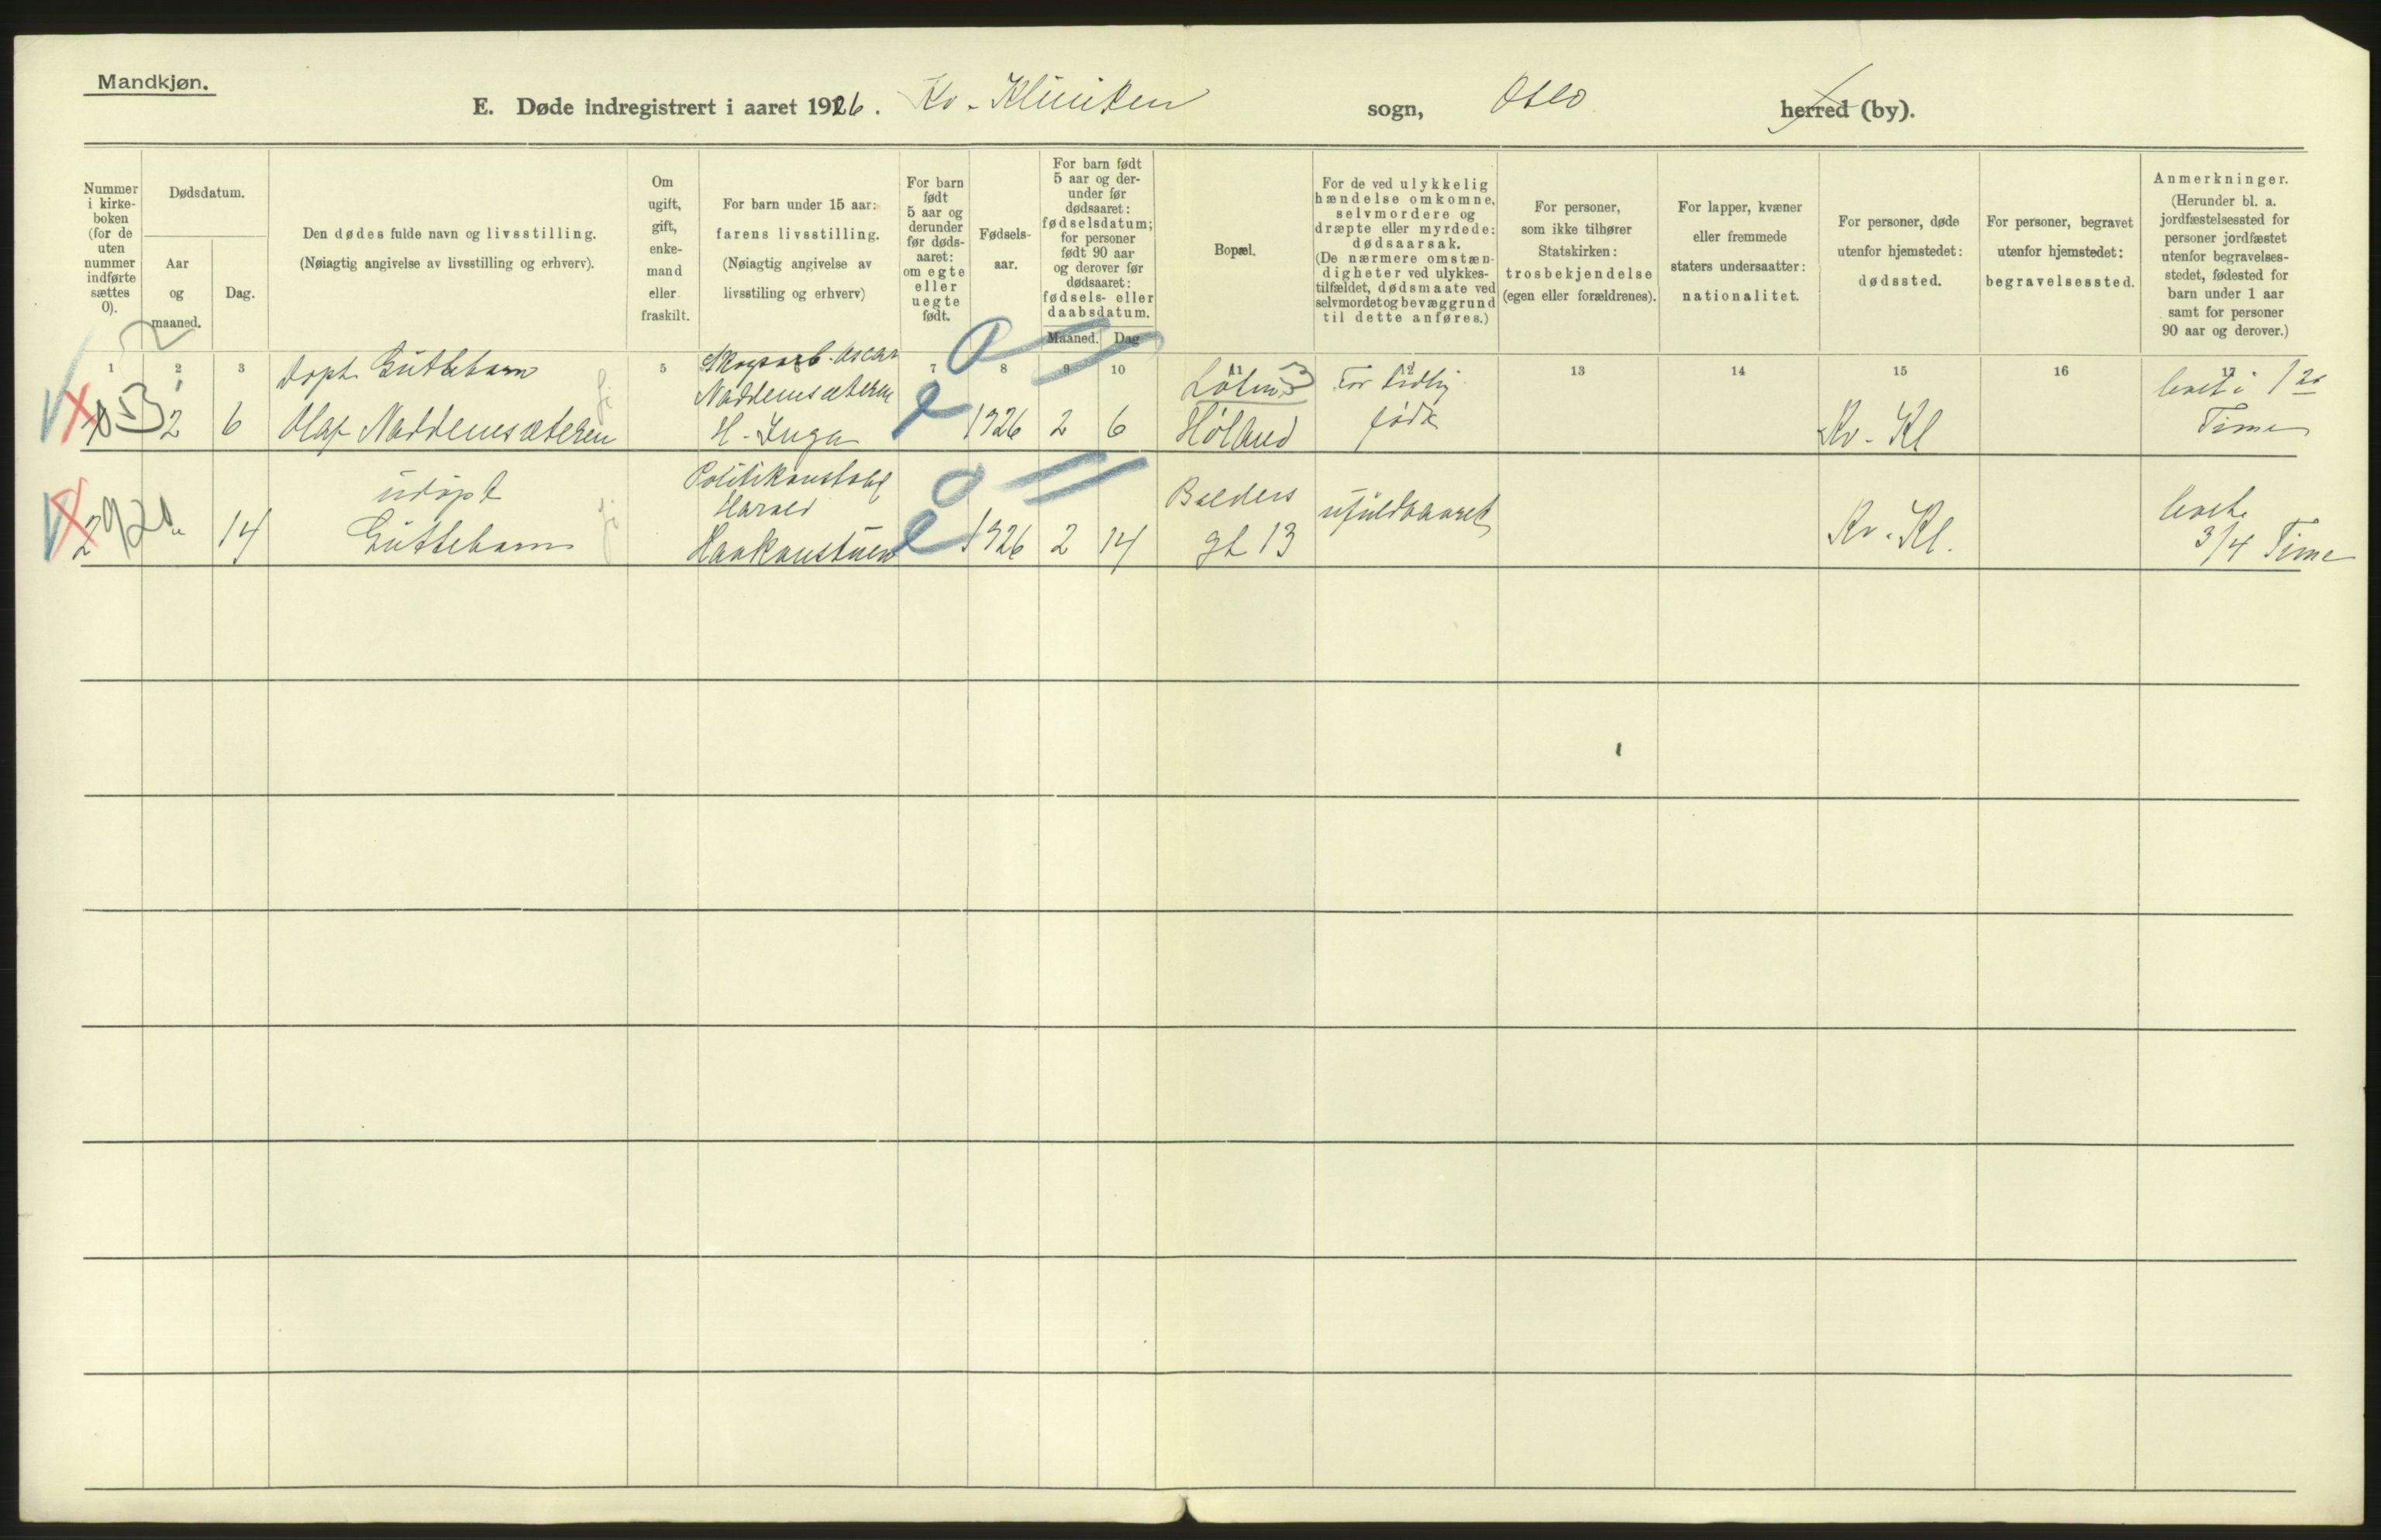 Mandkjøn.
E. Døde indregistrert i aaret 1926. Kv. Kliniken sogn, Oslo herred (by).
Nummer i kirke-boken (for de uten nummer indførte sættes 0).
Dødsdatum.
Aar og maaned.
Dag.
Den dødes fulde navn og livsstilling.
(Nøiagtig angivelse av livsstilling og erhverv).
Om ugift, gift, enke-mand eller fraskilt.
For barn under 15 aar:
farens livsstilling.
(Nøiagtig angivelse av
livsstiling og erhverv)
For barn født 5 aar og derunder før døds-aaret: om egte eller uegte født.
Fødsels-aar.
For barn født 5 aar og der-under før dødsaaret: fødselsdatum; for personer født 90 aar og derover før dødsaaret: fødsels- eller daabsdatum.
Maaned. Dag
Bopæl.
For de ved ulykkelig hændelse omkomne, selvmordere og dræpte eller myrdede: dødsaarsak.
(De nærmere omstæn-digheter ved ulykkes-tilfældet, dødsmaate ved selvmordet og bevæggrund til dette anføres.)
For personer,
som ikke tilhører
Statskirken:
trosbekjendelse
(egen eller forældrenes).
For lapper, kvæner
eller fremmede
staters undersaatter:
nationalitet.
For personer, døde
utenfor hjemstedet:
dødssted.
For personer, begravet
utenfor hjemstedet:
begravelsessted.
Anmerkninger.
(Herunder bl. a.
jordfæstelsessted for
personer jordfæstet
utenfor begravelses-
stedet, fødested for
barn under 1 aar
samt for personer
90 aar og derover.)
1 2 3 5 7 8 9 10 11 12 13 14 15 16 17
døpt Guttebarn
Skogsarb. Oscar
Naddemsæteren
H. Inga
2 6 Olaf Naddemsæteren
e 1926 2 6
Løten
Høland
For tidlig
født
Kv. Kl
levet i 1 20
Time
udøpt
Politikonstabel
Harald
2 " 14 Guttebarn Haakonstuen
e 1926 2 14
Balders
gt 13
ufuldbaaret
Kv. Kl.
levet
3/4 Time